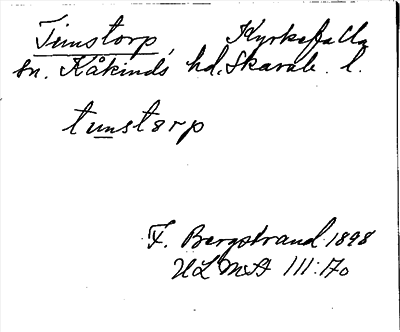 Timstorp, Kyrkefalla
sn. Kåkinds hd. Skarab. l.
tımstɜrp
F. Bergstrand 1898
ULMA 111:170